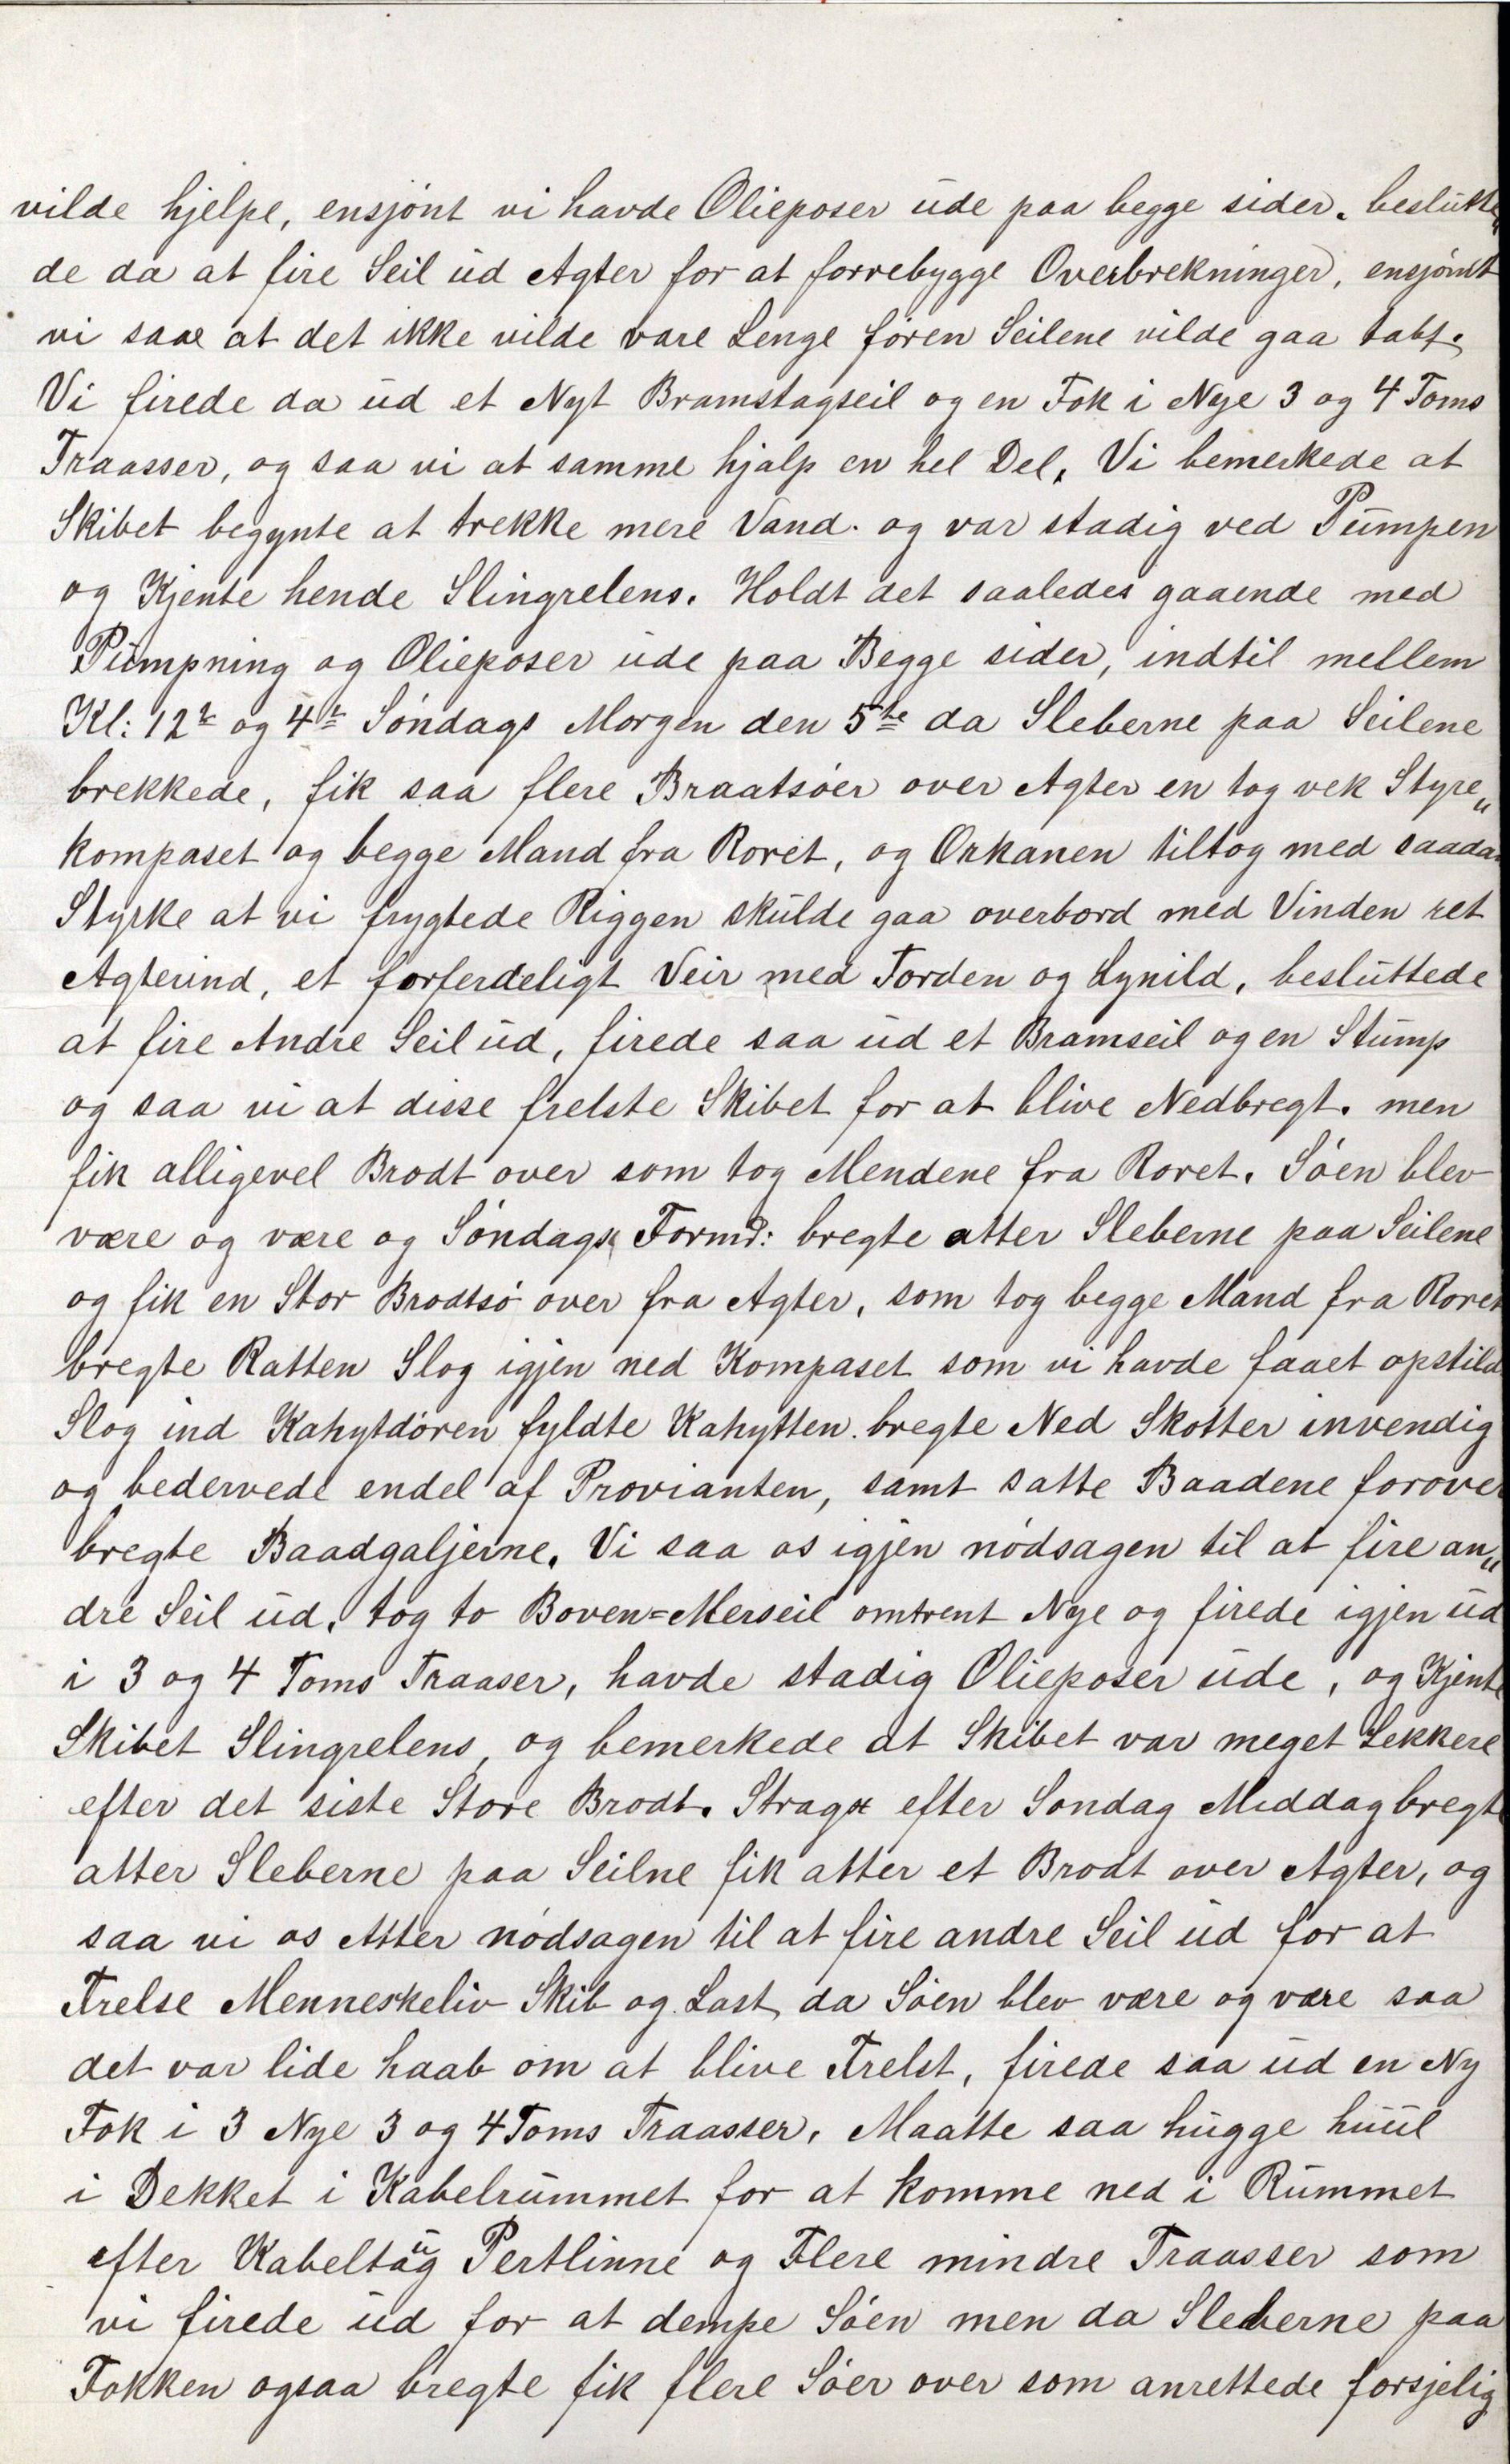 vilde hjelpe, ensjönt vi havde Olieposer ude paa begge sider. beslutte„
de da at fire Seil ud Agter for at forrebygge Overbrekninger, ensjönt
vi saae at det ikke vilde vare Lenge fören Seilene vilde gaa tabt.
Vi firede da ud et Nyt Bramstagseil og en Fok i Nye 3 og 4 Toms
Traasser, og saa vi at samme hjalp en hel Del, Vi bemerkede at
Skibet begynte at trekke mere Vand. og var stadig ved Pumpen
og Kjente hende Slingrelens. Holdt det saaledes gaaende med
Pumpning og Olieposer ude paa Begge sider, indtil mellem
Kl: 12 og 4 Söndags Morgen den 5te da Sleberne paa Seilene
brekkede, fik saa flere Braatsöer over Agter en tog vek Styre„
kompaset og begge Mand fra Roret, og Orkanen tiltog med saadan
Styrke at vi frygtede Riggen skulde gaa overbord med Vinden ret
Agterind, et forferdeligt Veir med Torden og Lynild, besluttede
at fire Andre Seil ud, firede saa ud et Bramseil og en Stump
og saa vi at disse frelste Skibet for at blive Nedbregt. men
fik alligevel Brodt over som tog Mendene fra Roret. Söen blev
være og være og Söndags Formd: bregte atter Sleberne paa Seilene
og fik en Stor Brodtsö over fra Agter, som tog begge Mand fra Roret
bregte Ratten Slog igjen ned Kompaset som vi havde faaet opstild
Slog ind Kahytdören fyldte Kahytten. bregte Ned Skotter invendig
og bedervede endel af Provianten, samt satte Baadene forover
bregte Baadgaljerne. Vi saa os igjen nödsagen til at fire an„
dre Seil ud, tog to Boven=Merseil omtrent Nye og firede igjen ud
i 3 og 4 Toms Traaser, havde stadig Olieposer ude, og Kjente
Skibet Slingrelens, og bemerkede at Skibet var meget Lekkere
efter det siste Store Brodt. Stragx efter Sondag Middag bregte
atter Sleberne paa Seilne fik atter et Brodt over Agter, og
saa vi os Atter nödsagen til at fire andre Seil ud for at
Frelse Menneskeliv Skib og Last, da Söen blev være og være saa
det var lide haab om at blive Frelst, firede saa ud en Ny
Fok i 3 Nye 3 og 4 Toms Traasser. Maatte saa hugge huul
i Dekket i Kabelrummet for at komme ned i Rummet
efter Kabeltaug Pertlinne og Flere mindre Traasser som
vi firede ud for at dempe Söen men da Sleberne paa
Fokken ogsaa bregte fik flere Söer over som anrettede forsjelig